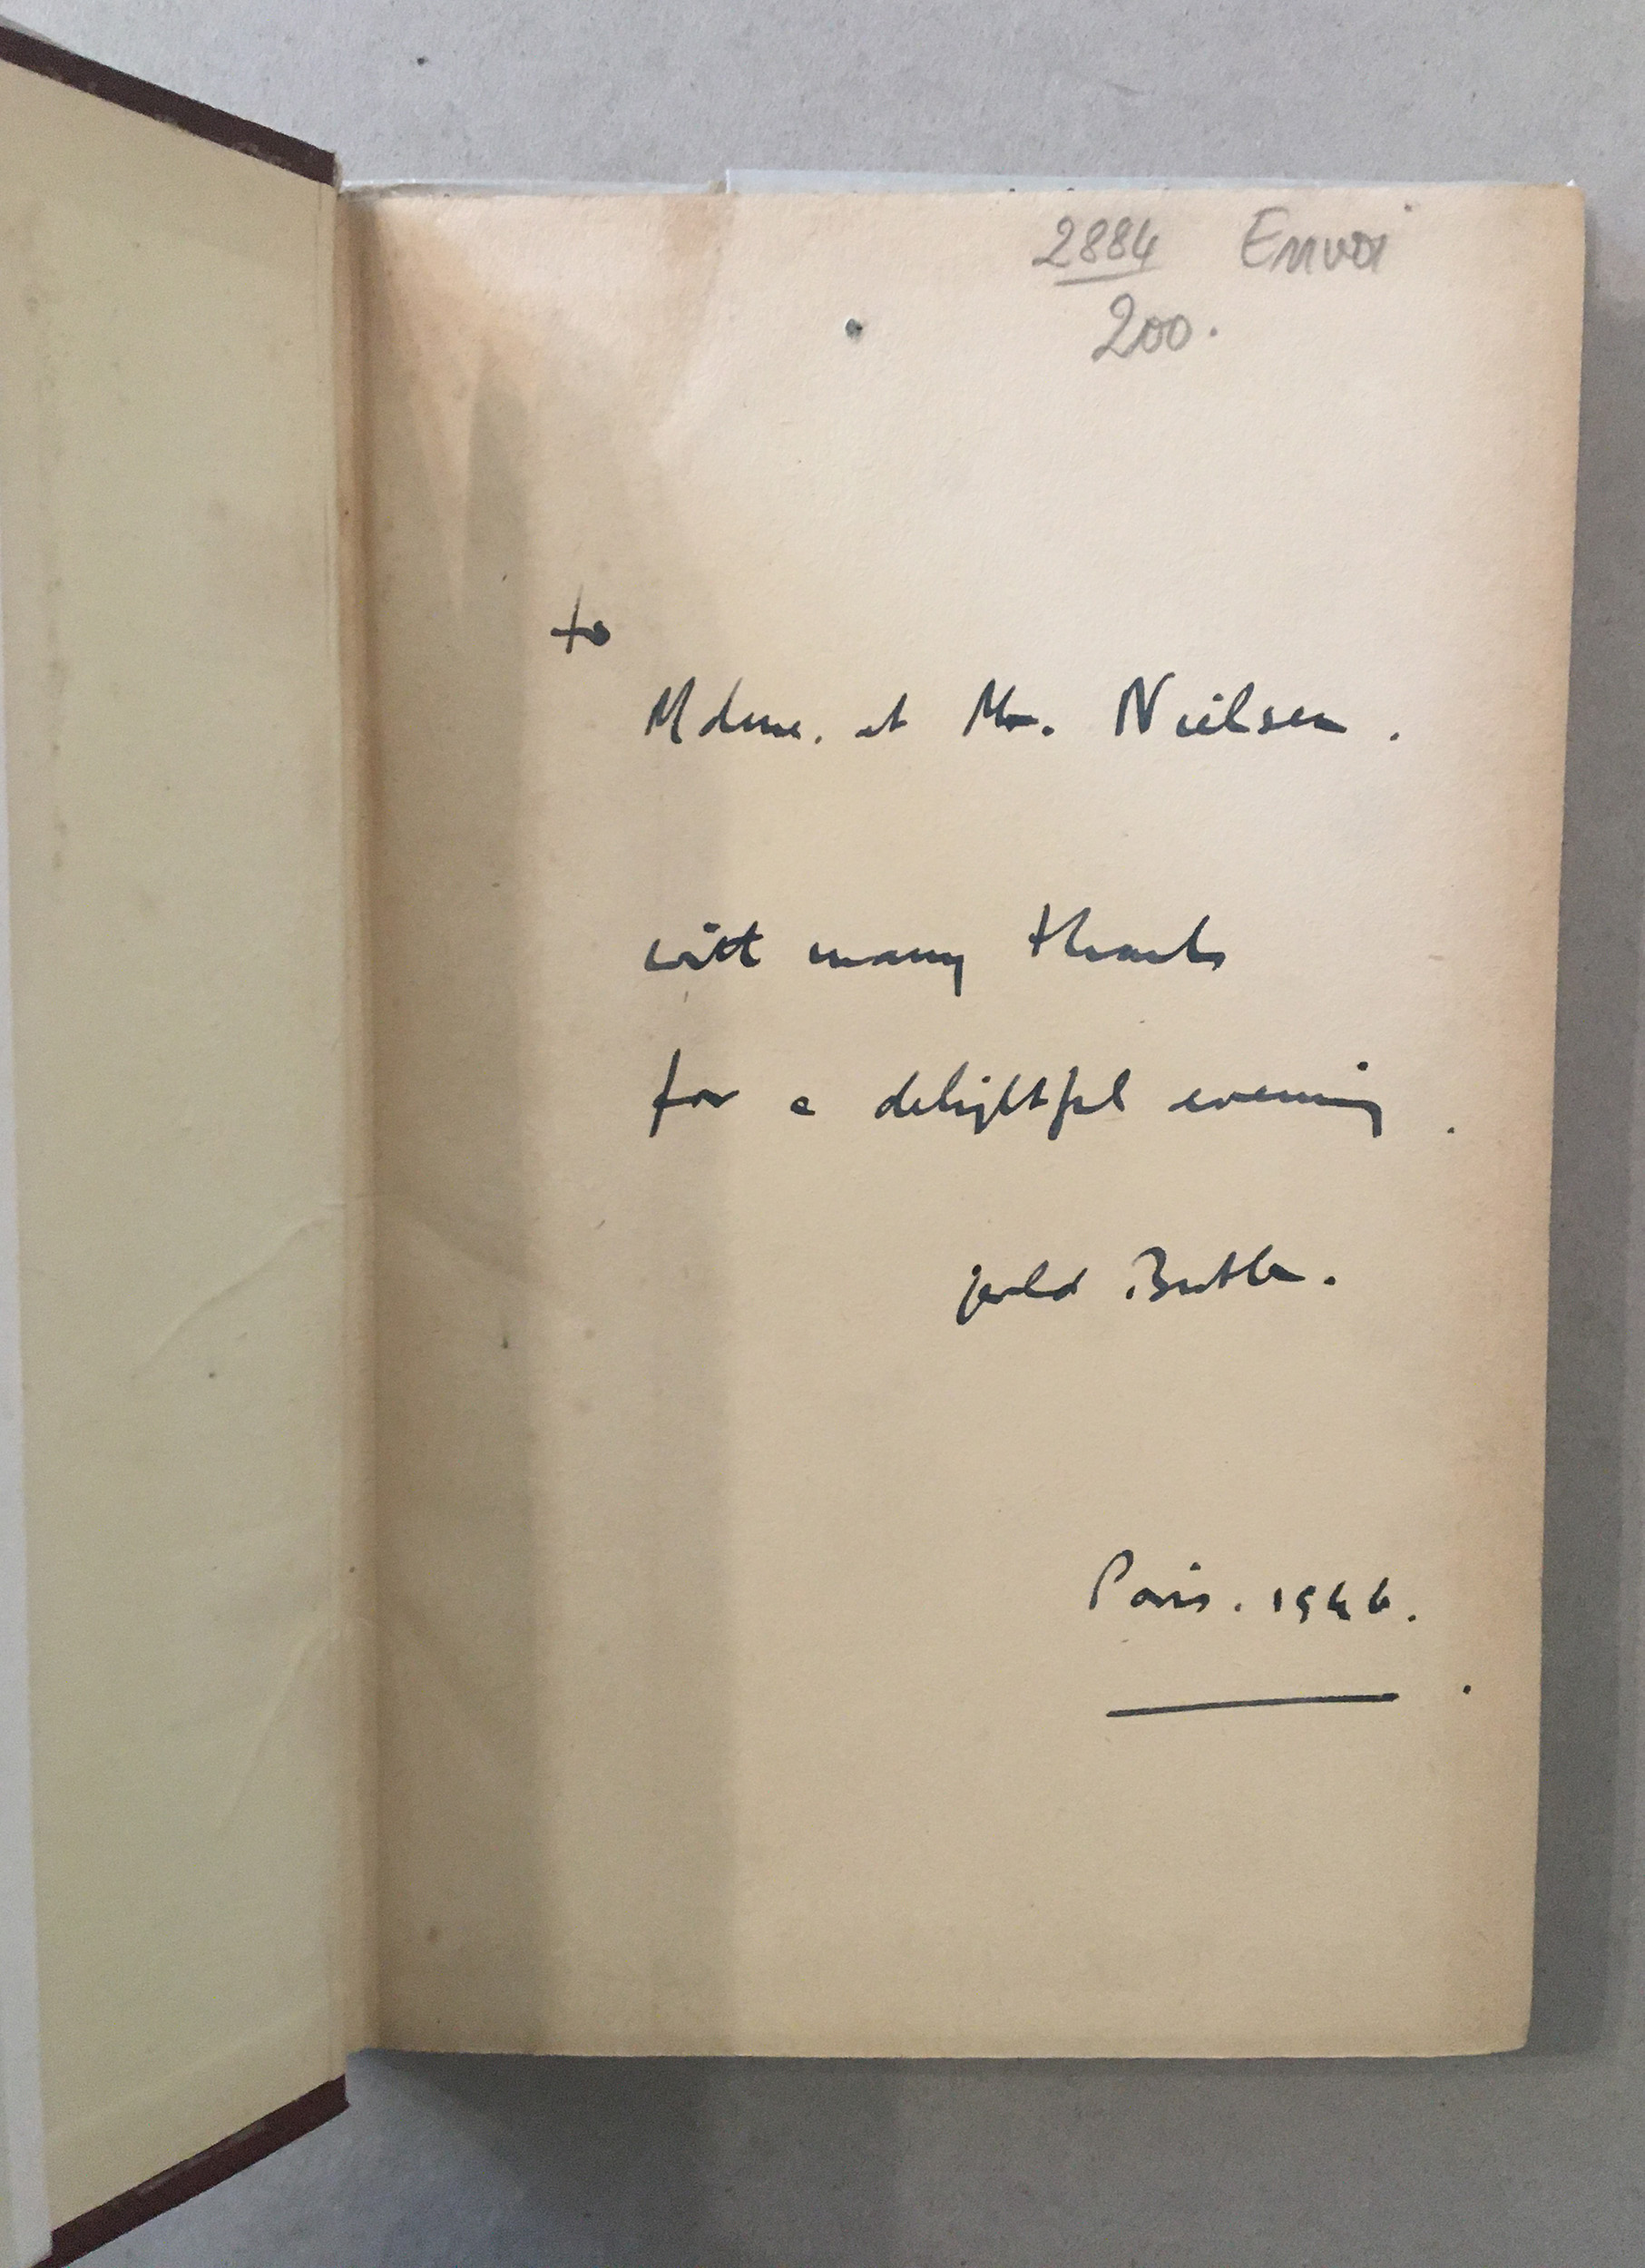 2884 Envoi
200.
to
Mdme. et Mr. Nielsen.
with many thanks
for a delightful evening.
Gerald Butler.
Paris. 1946.